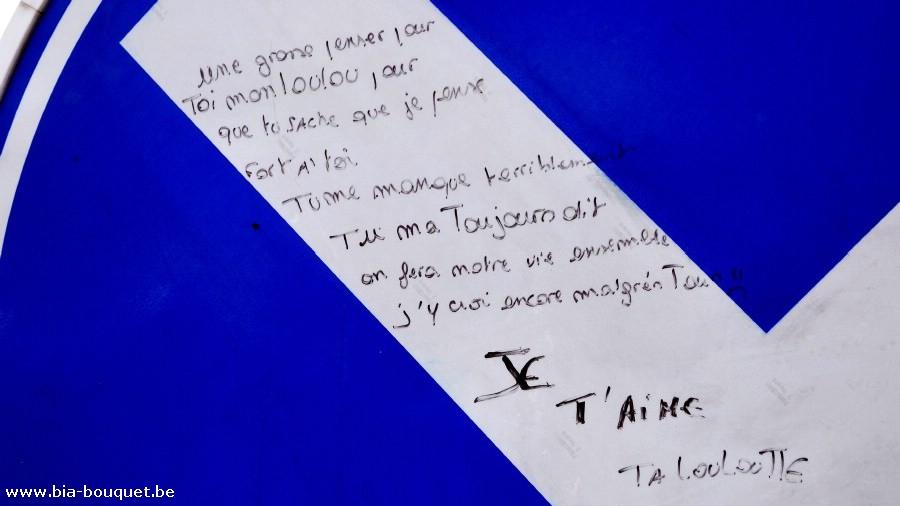 une grosse penser pour
Toi mon loulou pour
que tu SAche que je pense
fort A' toi
Tu me manque terriblement
Tu ma Toujours dit
on fera notre vie ensemble
j'y croi encore malgrér Tous !!
JE
T'AiME
TA LOULOUTTE
www.bia-bouquet.be